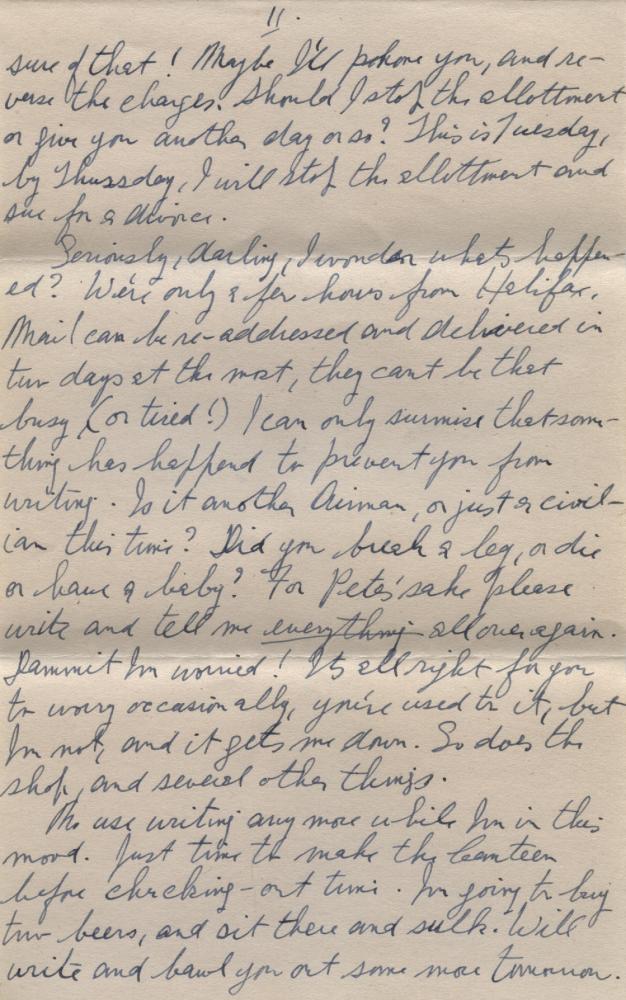 11.
sure of that! Maybe I'll pohone you, and re-
verse the charges. Should I stop the allottment
or give you another day or so? This is Tuesday,
by Thursday, I will stop the allottment and
sue for a divorce.
Seriously, darling, I wonder whats happen-
ed? We're only a few hours from Halifax.
Mail can be re-addressed and delivered in
two days at the most, they cant be that
busy (or tired!) I can only surmise that some-
thing has happend to prevent you from
writing. Is it another Airman, or just a civil-
ian this time? Did you break a leg, or die
or have a baby? For Petes' sake please
write and tell me everything all over again.
Dammit Im worried! Its all right for you
to worry occasionally, you're used to it, but
Im not, and it gets me down. So does the
shop, and several other things.
No use writing any more while Im in this
mood. Just time to make the Canteen
before checking-out time. Im going to buy
two beers, and sit there and sulk. Will
write and bawl you out some more tomorrow.